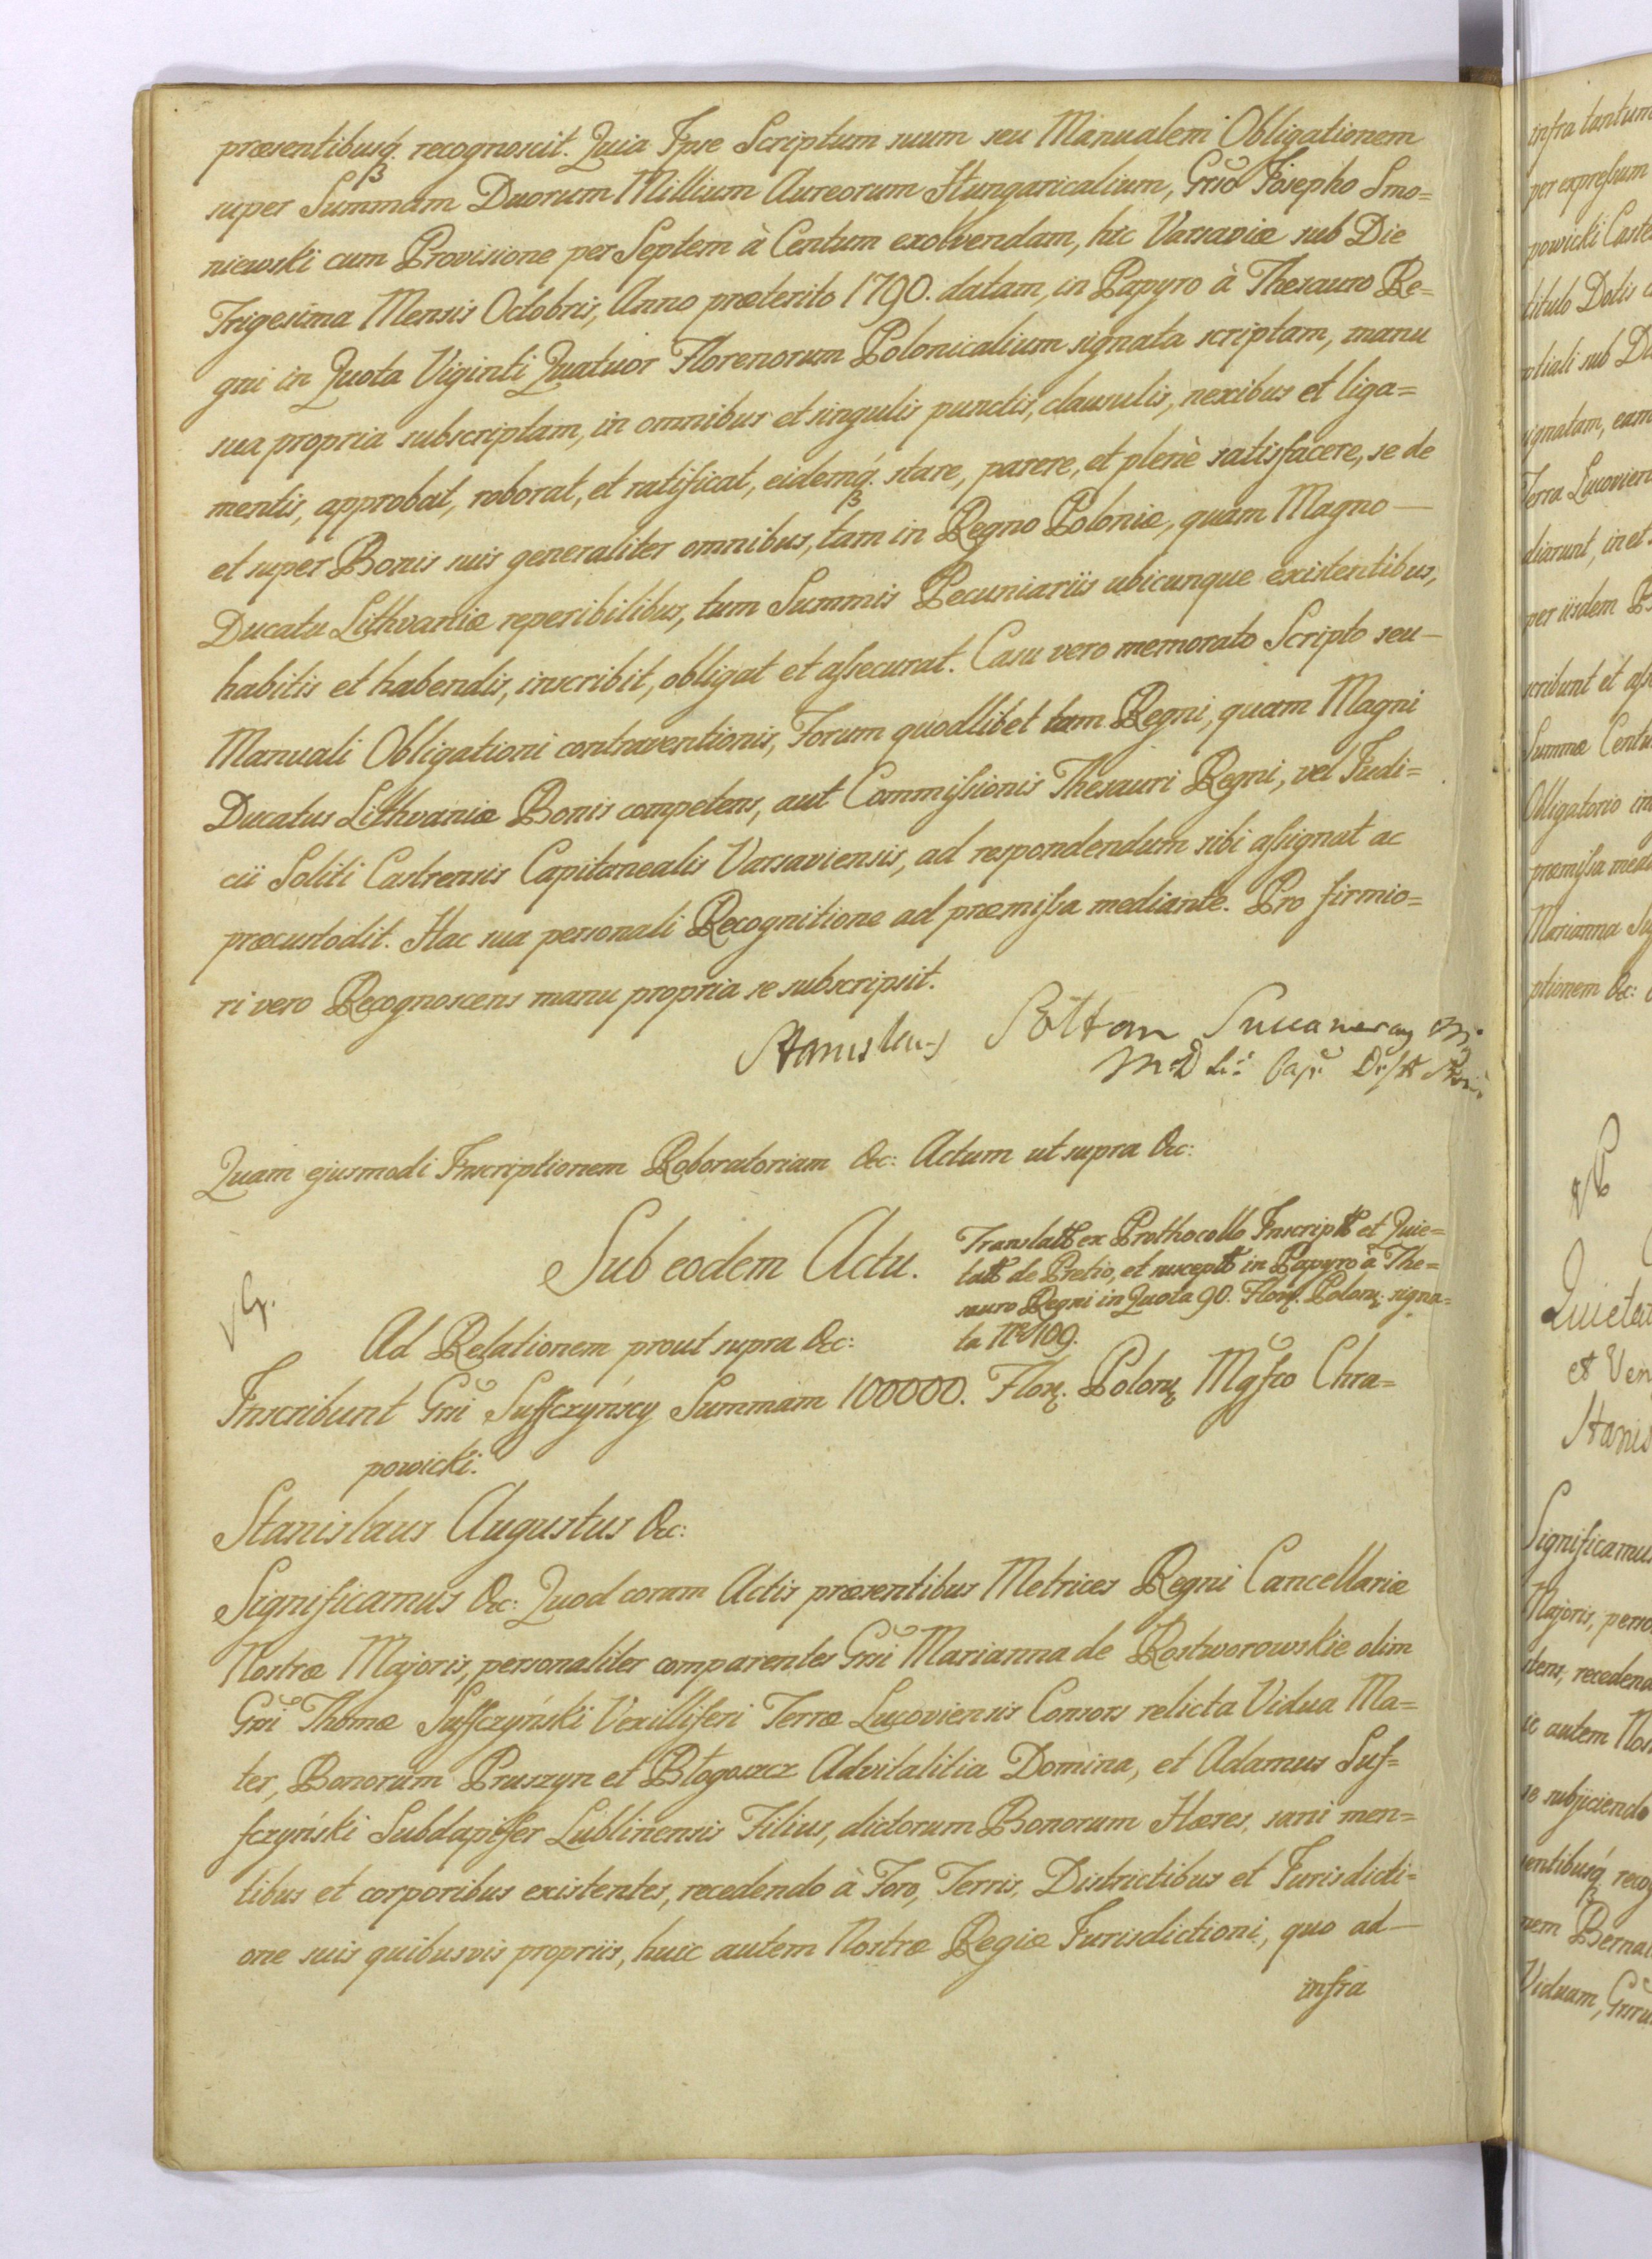 præsentibusq. recognoscit. Quia Ipse Scriptum suum seu Manualem Obligationem
super Summam Duorum Millium Aureorum Hungaricalium, Grso Josepho Smo=
niewski cum Provisione per Septem à Centum exolvendam, hic Varsaviæ sub Die
Trigesima Mensis Octobris, Anno præterito 1790. datam, in Papyro à Thesauro Re=
gni in Quota Viginti Quatuor Florenorum Polonicalium signata scriptam, manu
sua propria subscriptam, in omnibus et singulis punctis, clausulis, nexibus et liga=
mentis, approbat, roborat, et ratificat, eidemq. stare, parere, et plenè satisfacere, se de
et super Bonis suis generaliter omnibus, tam in Regno Poloniæ, quam Magno —
Ducatu Lithvaniæ reperibilibus, tum Summis Pecuniariis ubicunque existentibus,
habitis et habendis, inscribit, obligat et assecurat. Casu vero memorato Scripto seu —
Manuali Obligationi contraventionis, Forum quodlibet tam Regni, quam Magni
Ducatus Lithvaniæ Bonis competens, aut Commissionis Thesauri Regni, vel Judi=
cii Soliti Castrensis Capitanealis Varsaviensis, ad respondendum sibi assignat ac
præcustodit. Hac sua personali Recognitione ad præmissa mediante. Pro firmio=
ri vero Recognoscens manu propria se subscripsit.
Stanislaus Sołtan
M D Li:
Quam ejusmodi Inscriptionem Roboratoriam &c: Actum ut supra &c:
Sub eodem Actu.
Translatt ex Prothocollo Inscriptt et Quie=
tatt de Pretio, et susceptt in Papyro à The=
sauro Regni in Quota 90. Flor. Polon. signa=
ta No 109.
Ad Relationem prout supra &c:
Inscribunt Gsi Suffczyńscy Summam 100000. Flor. Polon. Mgfco Chra=
powicki.
Stanislaus Augustus &c:
Significamus &c: Quod coram Actis præsentibus Metrices Regni Cancellariæ
Nostræ Majoris, personaliter comparentes Gsi Marianna de Rostworowskie olim
Gsi Thomæ Suffczyński Vexilliferi Terræ Lucoviensis Consors relicta Vidua Ma=
ter, Bonorum Pruszyn et Błogoszcz Advitalitia Domina, et Adamus Suf=
fczyński Subdapifer Lublinensis Filius, dictorum Bonorum Hæres, sani men=
tibus et corporibus existentes, recedendo à Foro, Terris, Districtibus et Jurisdicti=
one suis quibusvis propriis, huic autem Nostræ Regiæ Jurisdictioni, quo ad —
infra
infra tantum
per expressum
powicki Caste
titulo Dotis
ignatam, eam
Terra Lucovien
per iisdem
scribunt et
Summæ Centu
Obligatorio
præmissa med
Marianna
ptionem &c:
Quietat
et Ven
Stanis
Significamus
Majoris, perso
autem Nos
se subjiciendo
Viduam,